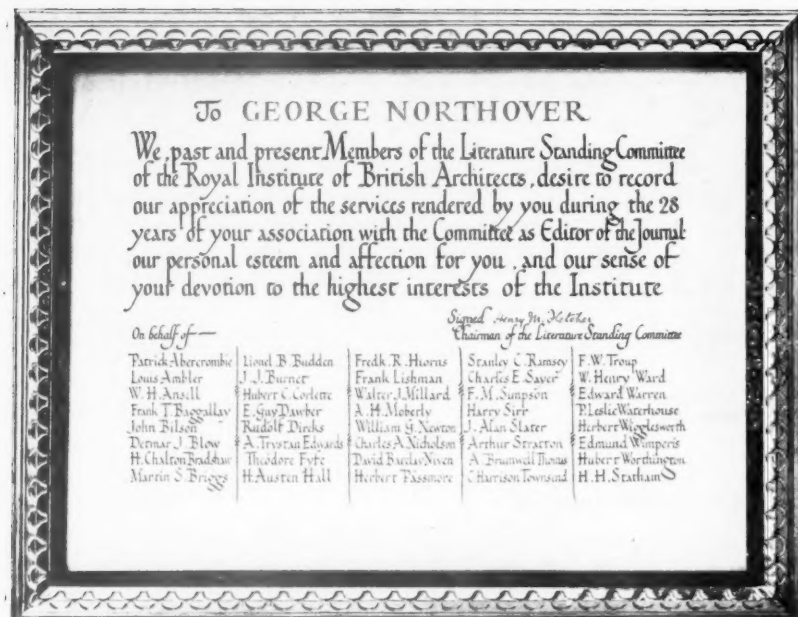 To GEORGE NORTHOVER
We, past and present Members of the Literature Standing Committee
of the Royal Institute of British Architects, desire to record
our appreciation of the services rendered by you during the 28
years of your association with the Committee as Editor of the Journal:
our personal esteem and affection for you, and our sense of
your devotion to the highest interests of the Institute
Signed Henry M. Fletcher
On behalf of —
Chairman of the Literature Standing Committee
Patrick Abercrombie
Louis Ambler
W. H. Ansell
Frank T. Baggallay
John Bilson
Detmar J. Blow
H. Chalton Bradshaw
Martin S. Briggs
Lionel B. Budden
J. J. Burnet
Hubert C. Corlette
E. Guy Dawber
Rudolf Dircks
A. Trystan Edwards
Theodore Fyfe
H. Austen Hall
Fredk. R. Hiorns
Frank Lishman
Walter J. Millard
A. H. Moberly
William G. Newton
Charles A. Nicholson
David Barclay Niven
Herbert Passmore
Stanley C. Ramsey
Charles E. Sayer
F. M. Simpson
Harry Sirr
J. Alan Slater
Arthur Stratton
A. Brumwell Thomas
C. Harrison Townsend
F. W. Troup
W. Henry Ward
Edward Warren
P. Leslie Waterhouse
Herbert Wigglesworth
Edmund Wimperis
Hubert Worthington
H. H. Statham